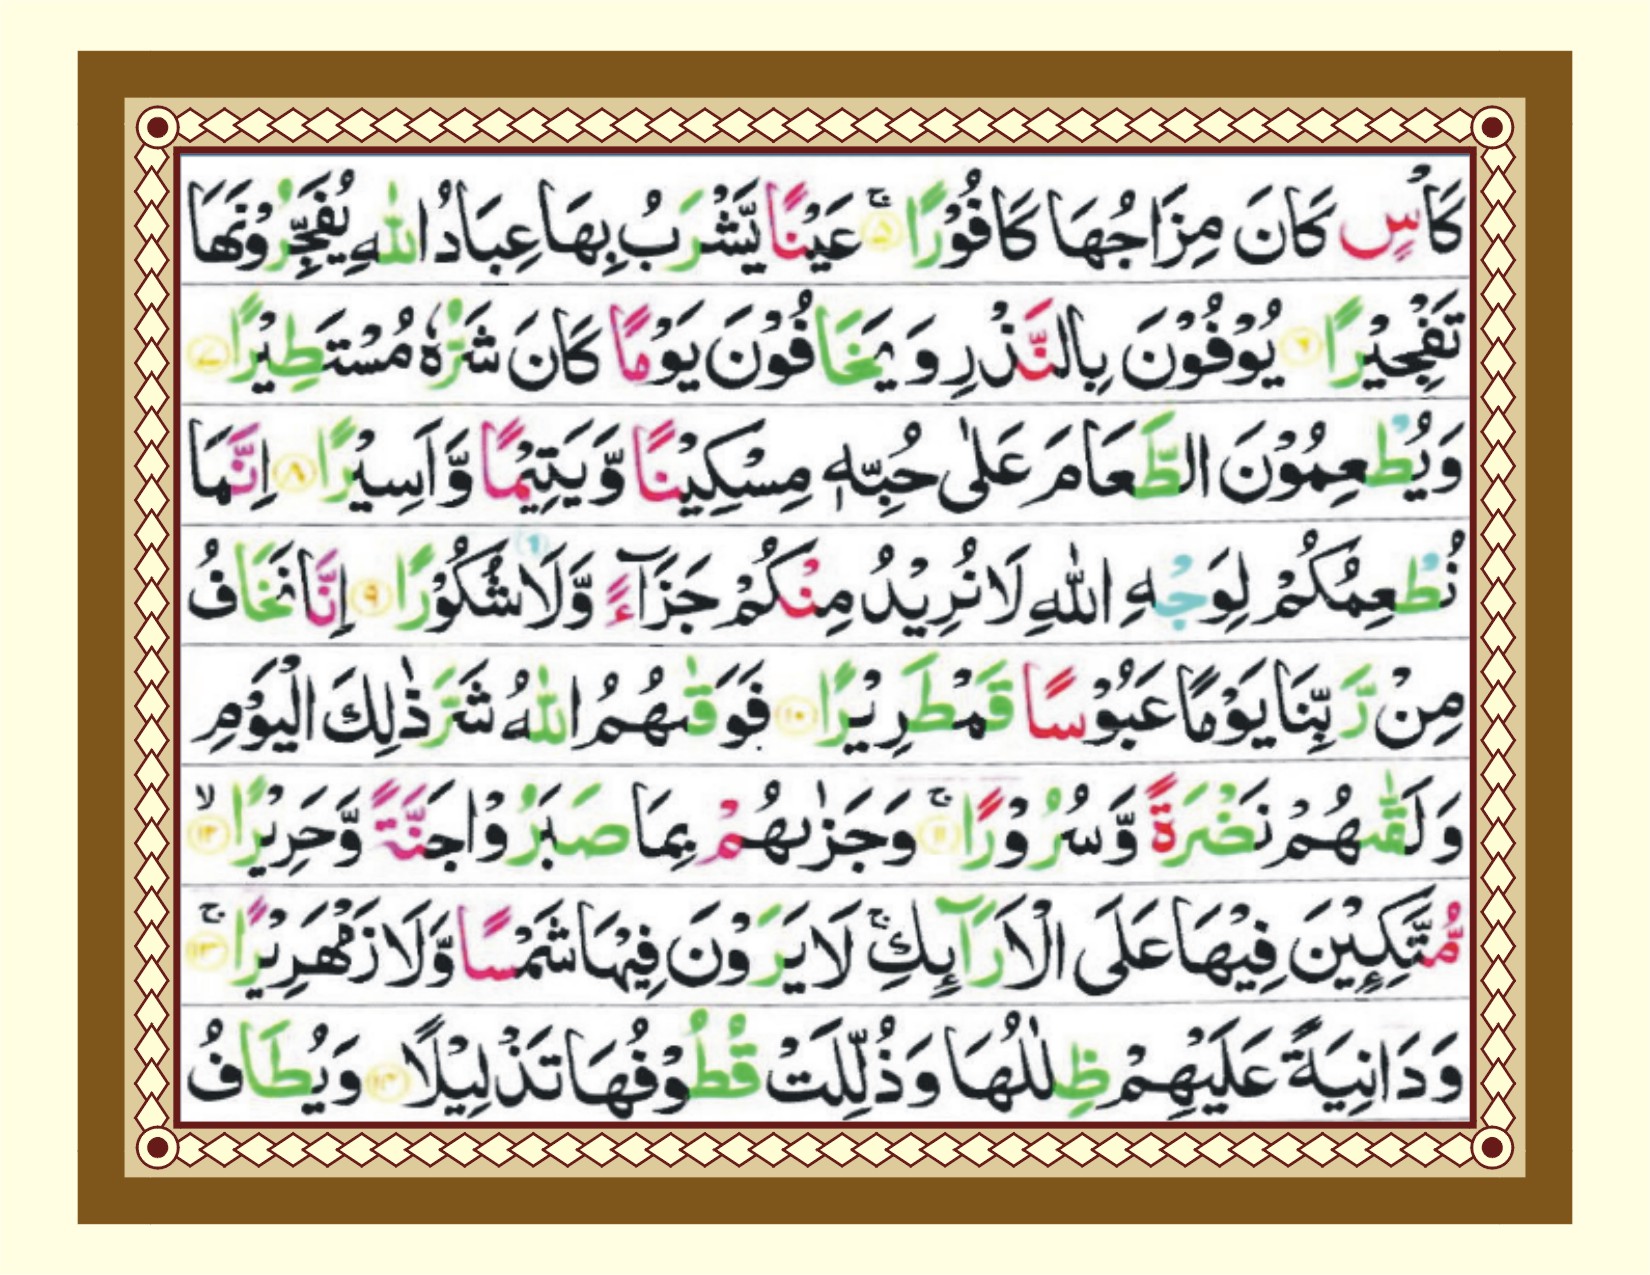 كَاْسٍ كَانَ مِزَاجُهَا كَافُوْرًا ۚ ﴿۵﴾ عَيْنًا يَّشْرَبُ بِهَا عِبَادُ اللّٰهِ يُفَجِّرُوْنَهَا
تَفْجِيْرًا ﴿۶﴾ يُوْفُوْنَ بِالنَّذْرِ وَ يَخَافُوْنَ يَوْمًا كَانَ شَرُّهٗ مُسْتَطِيْرًا ﴿۷﴾
وَيُطْعِمُوْنَ الطَّعَامَ عَلٰى حُبِّهٖ مِسْكِيْنًا وَّيَتِيْمًا وَّاَسِيْرًا ﴿۸﴾ اِنَّمَا
نُطْعِمُكُمْ لِوَجْهِ اللّٰهِ لَا نُرِيْدُ مِنْكُمْ جَزَآءً وَّلَا شُكُوْرًا ﴿۹﴾ اِنَّا نَخَافُ
مِنْ رَّبِّنَا يَوْمًا عَبُوْسًا قَمْطَرِيْرًا ﴿۱۰﴾ فَوَقٰىهُمُ اللّٰهُ شَرَّ ذٰلِكَ الْيَوْمِ
وَلَقّٰىهُمْ نَضْرَةً وَّسُرُوْرًا ۚ ﴿۱۱﴾ وَجَزٰىهُمْ بِمَا صَبَرُوْا جَنَّةً وَّحَرِيْرًا ۙ ﴿۱۲﴾
مُّتَّكِـِٕيْنَ فِيْهَا عَلَى الْاَرَآىِٕكِ ۚ لَا يَرَوْنَ فِيْهَا شَمْسًا وَّلَا زَمْهَرِيْرًا ۚ ﴿۱۳﴾
وَدَانِيَةً عَلَيْهِمْ ظِلٰلُهَا وَذُلِّلَتْ قُطُوْفُهَا تَذْلِيْلًا ﴿۱۴﴾ وَيُطَافُ